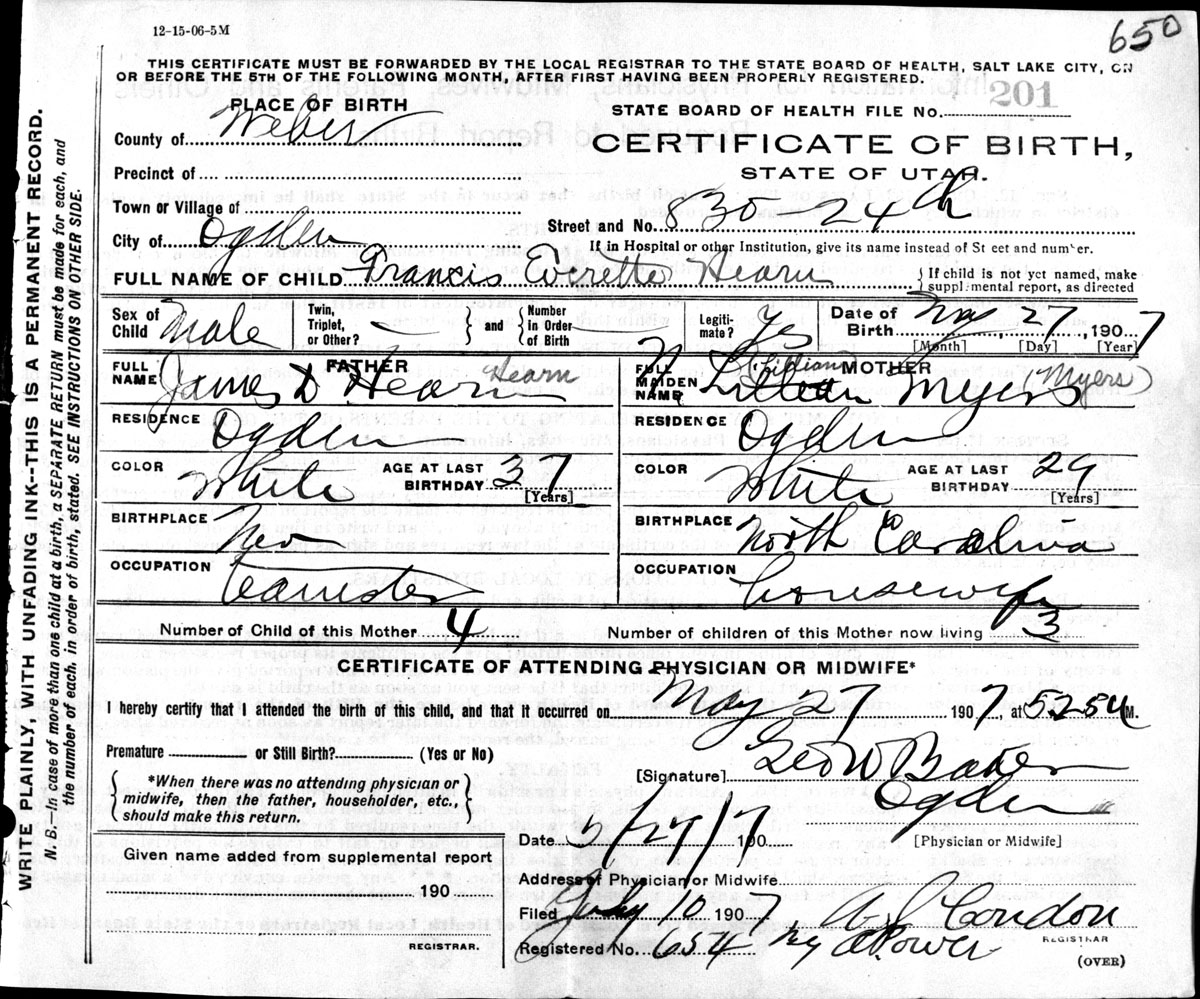 12-15-06-5M
650
THIS CERTIFICATE MUST BE FORWARDED BY THE LOCAL REGISTRAR TO THE STATE BOARD OF HEALTH, SALT LAKE CITY, ON
OR BEFORE THE 5TH OF THE FOLLOWING MONTH, AFTER FIRST HAVING BEEN PROPERLY REGISTERED.
WRITE PLAINLY, WITH UNFADING INK--THIS IS A PERMANENT RECORD.
N. B.—In case of more than one child at a birth, a SEPARATE RETURN must be made for each, and
the number of each, in order of birth, stated. SEE INSTRUCTIONS ON OTHER SIDE.
PLACE OF BIRTH
County of Weber
Precinct of
Town or Village of
City of Ogden
STATE BOARD OF HEALTH FILE No. 201
CERTIFICATE OF BIRTH,
STATE OF UTAH.
Street and No. 830 24th
If in Hospital or other Institution, give its name instead of St eet and number.
FULL NAME OF CHILD Francis Everette Hearn
{ If child is not yet named, make
supplemental report, as directed
Sex of Child Male
Twin, Triplet, or Other? –
} and {
Number in Order of Birth
Legiti-mate? Yes
Date of Birth May 27, 1907
[Month] [Day] [Year]
FATHER
FULL NAME James D Hearn Hearn
RESIDENCE Ogden
COLOR White
AGE AT LAST BIRTHDAY 37 [Years]
BIRTHPLACE
OCCUPATION Teamster
MOTHER
FULL MAIDEN NAME (Lillian) Myers (Myers)
RESIDENCE Ogden
COLOR White
AGE AT LAST BIRTHDAY 29 [Years]
BIRTHPLACE North Carolina
OCCUPATION housewife
Number of Child of this Mother 4
Number of children of this Mother now living 3
CERTIFICATE OF ATTENDING PHYSICIAN OR MIDWIFE*
I hereby certify that I attended the birth of this child, and that it occurred on May 27 1907, at M.
Premature or Still Birth? (Yes or No)
{ *When there was no attending physician or
midwife, then the father, householder, etc.,
should make this return. }
[Signature] Geo W Baker
Ogden
[Physician or Midwife]
Date 5/27/7 190
Given name added from supplemental report
190
REGISTRAR.
Address of Physician or Midwife
Filed July 10 1907
A S Condon
REGISTRAR
Registered No. 654 by A Power
(OVER)